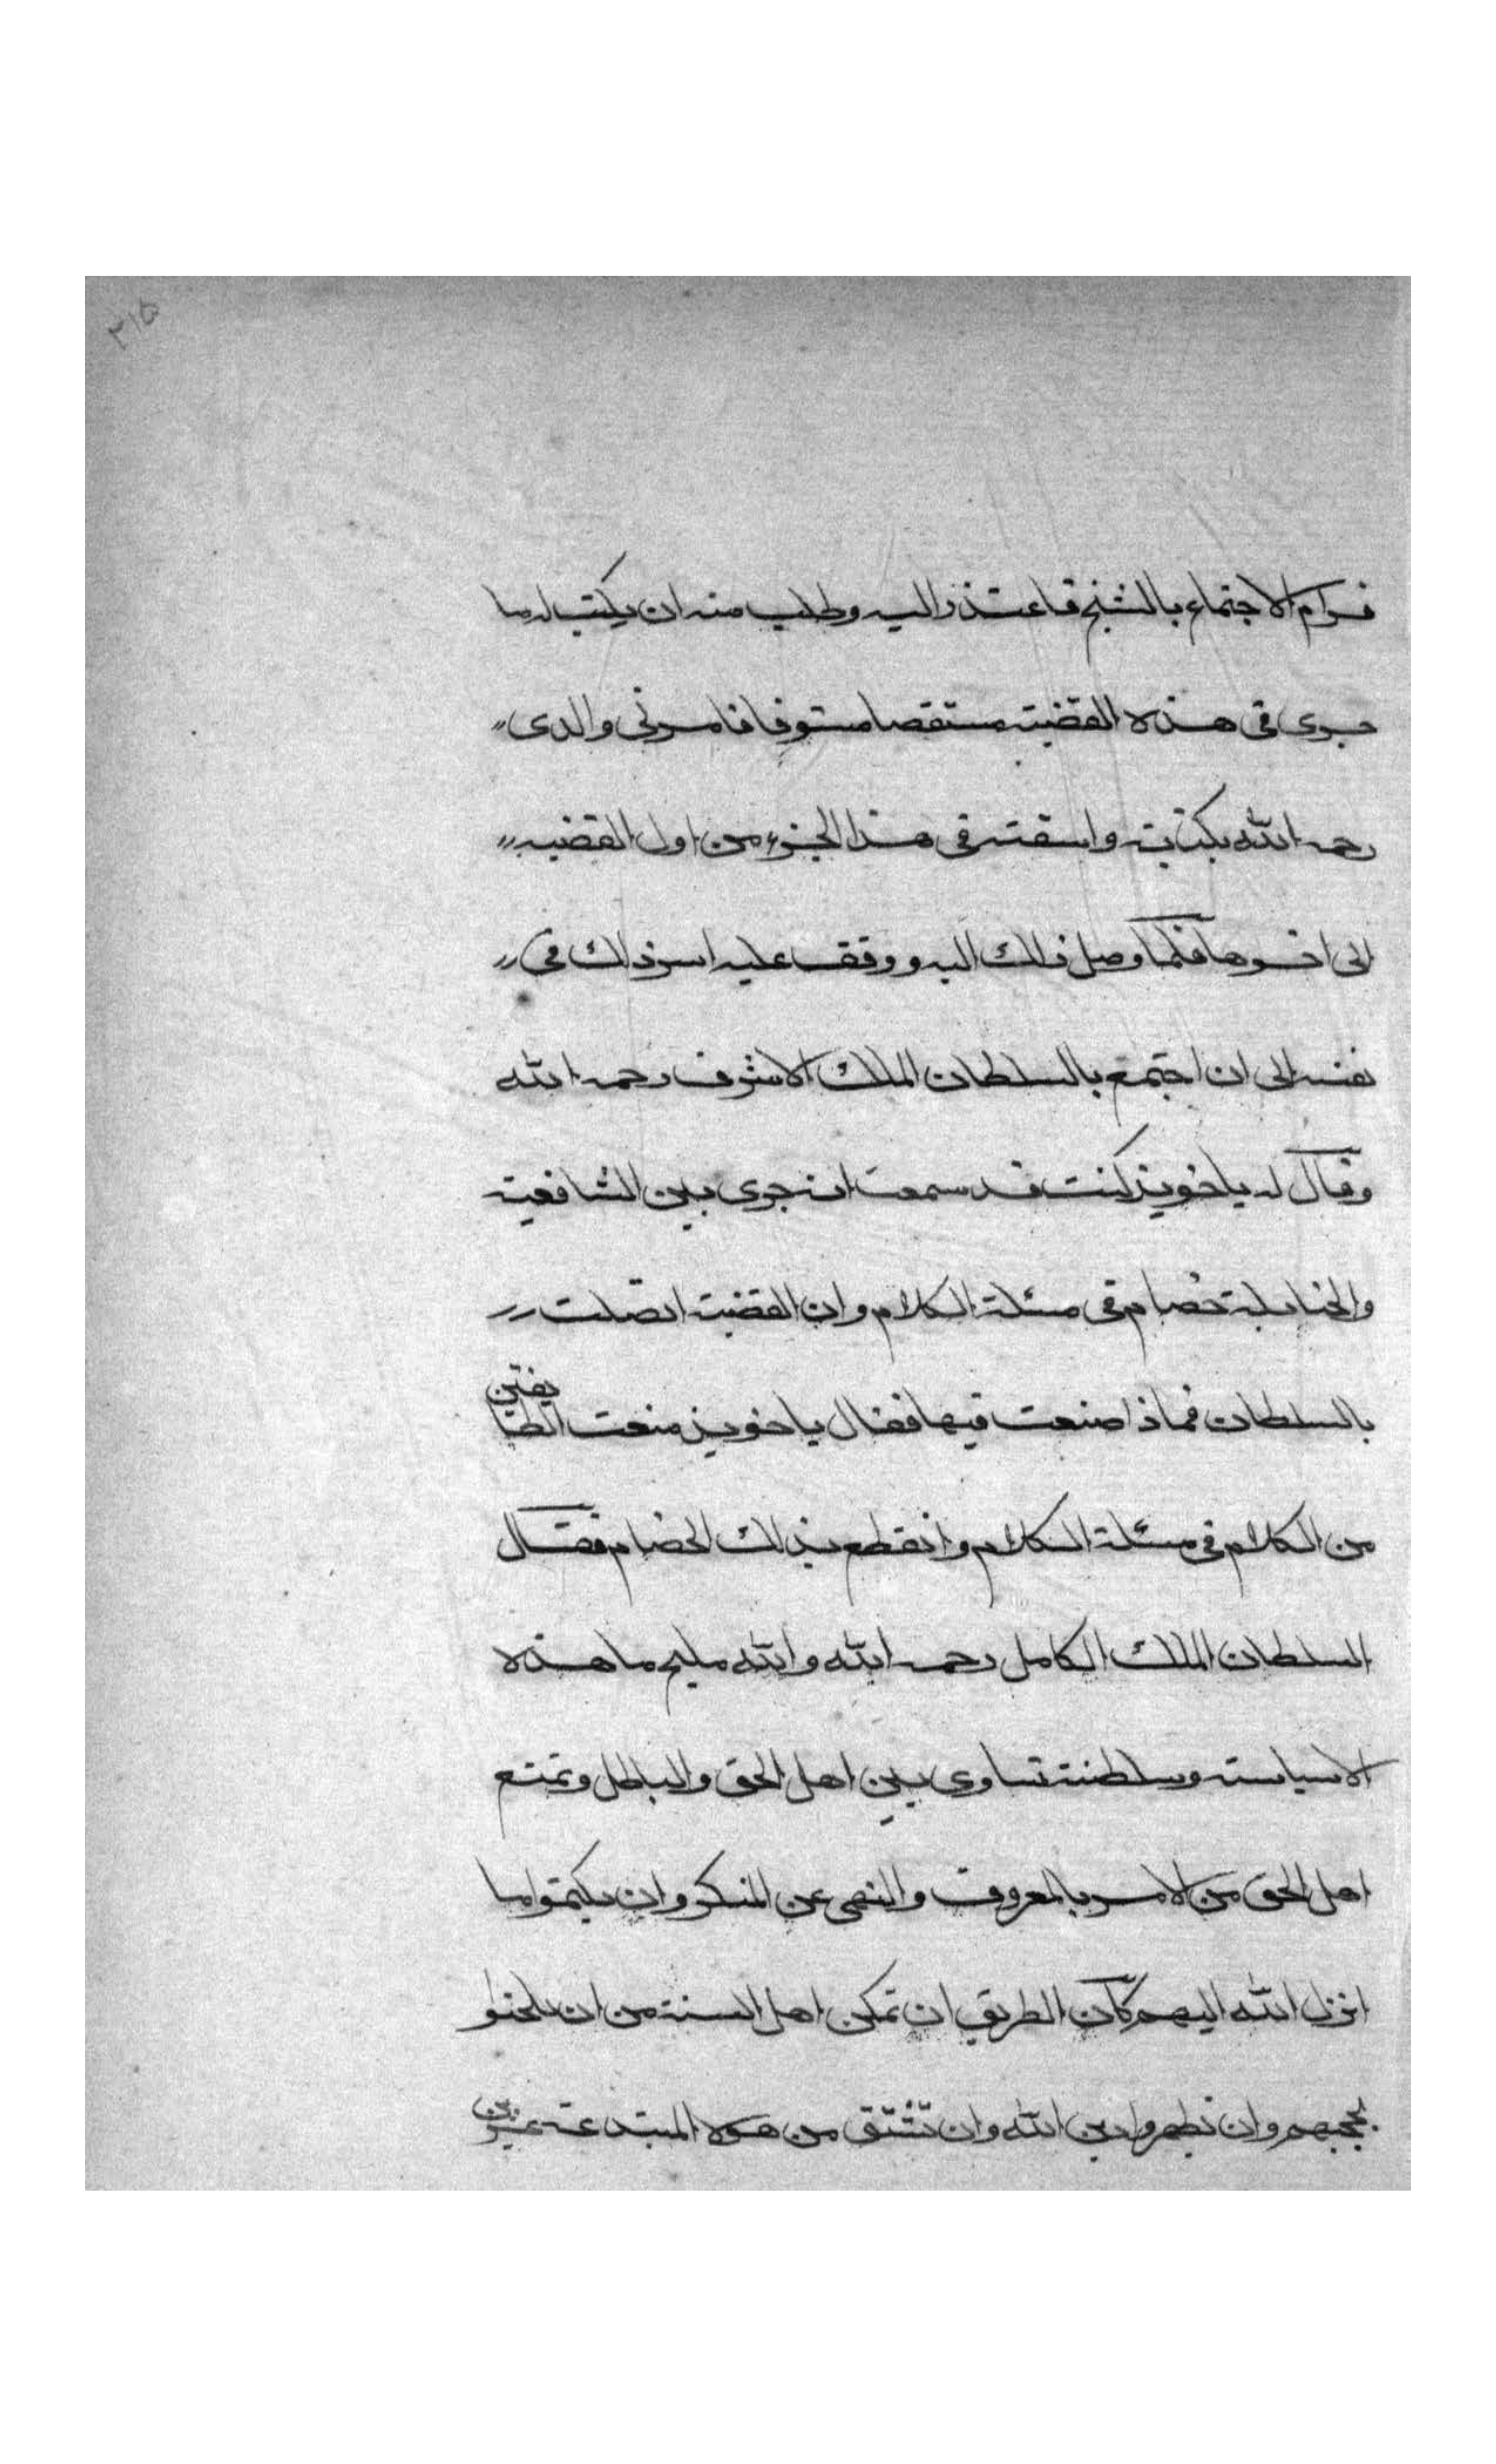 ٢١٥
فرام الاجتماع بالشيخ فاعتذر اليه وطلب منه ان يكتب له ما
جرى في هذه القضية مستقصا مستوفا فامرني والدى
رحمه الله بكتابته واسقته في هذا الجزء من اول القضيه
الى اخرها فلما وصل ذلك اليه ووقف عليه اسر ذلك في
نفسه الى ان اجتمع بالسلطان الملك الاشرف رحمه الله
وقال له ياخوند كنت قد سمعت انه جرى بين الشافعية
والحنابلة خصام في مسئلة الكلام وان القضية اتصلت
بالسلطان فماذا صنعت فيها فقال ياخوند منعت الطايفتين
من الكلام في مسئلة الكلام وانقطع بذلك الخصام فقال
السلطان الملك الكامل رحمه الله والله مليح ما هذه
الا سياسة وسلطنة تساوى بين اهل الحق والباطل وتمنع
اهل الحق من الامر بالمعروف والنهى عن المنكر وان يكتموا ما
انزل الله اليهم كان الطريق ان تمكن اهل السنة من ان يلحنوا
بحججهم وان يظهروا دين الله وان تشنق من هولا المبتدعة عشرين